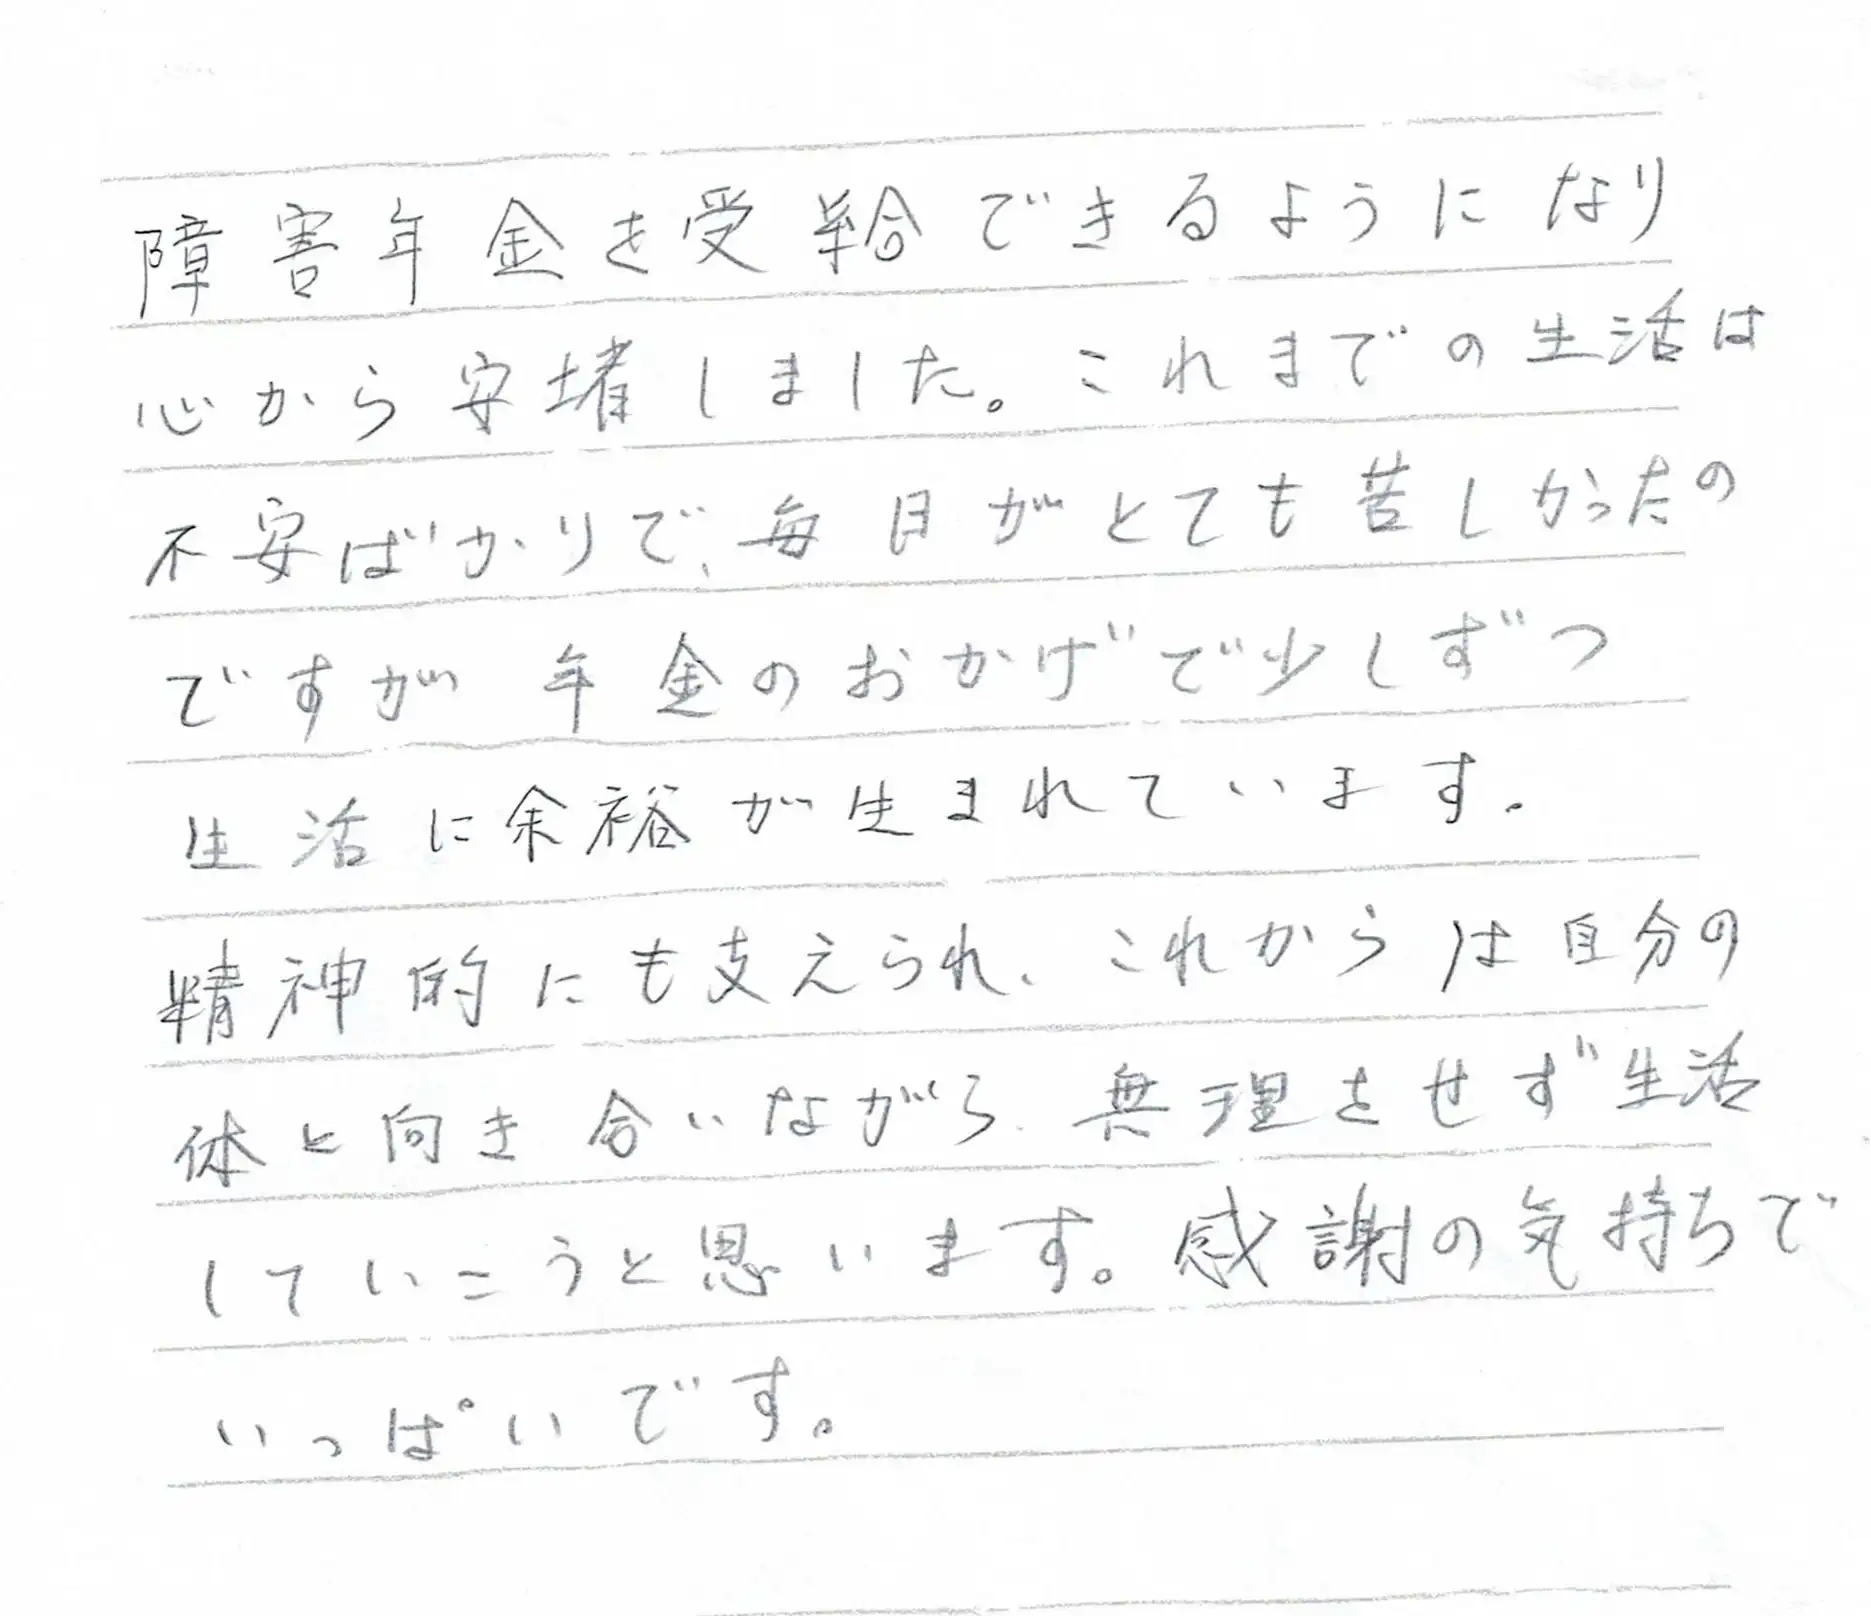 障害年金を受給できるようになり
心から安堵しました。これまでの生活は
不安ばかりで、毎日がとても苦しかったの
ですが年金のおかげで少しずつ
生活に余裕が生まれています。
精神的にも支えられ、これからは自分の
体と向き合いながら、無理をせず生活
していこうと思います。感謝の気持ちで
いっぱいです。